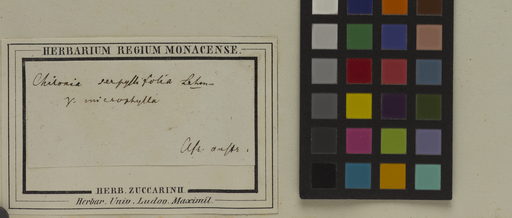 HERBARIUM REGIUM MONACENSE.
Chironia serpyllifolia Lehm.
γ. microphylla
Afr. austr.
HERB. ZUCCARINII
Herbar. Univ. Ludov. Maximil.